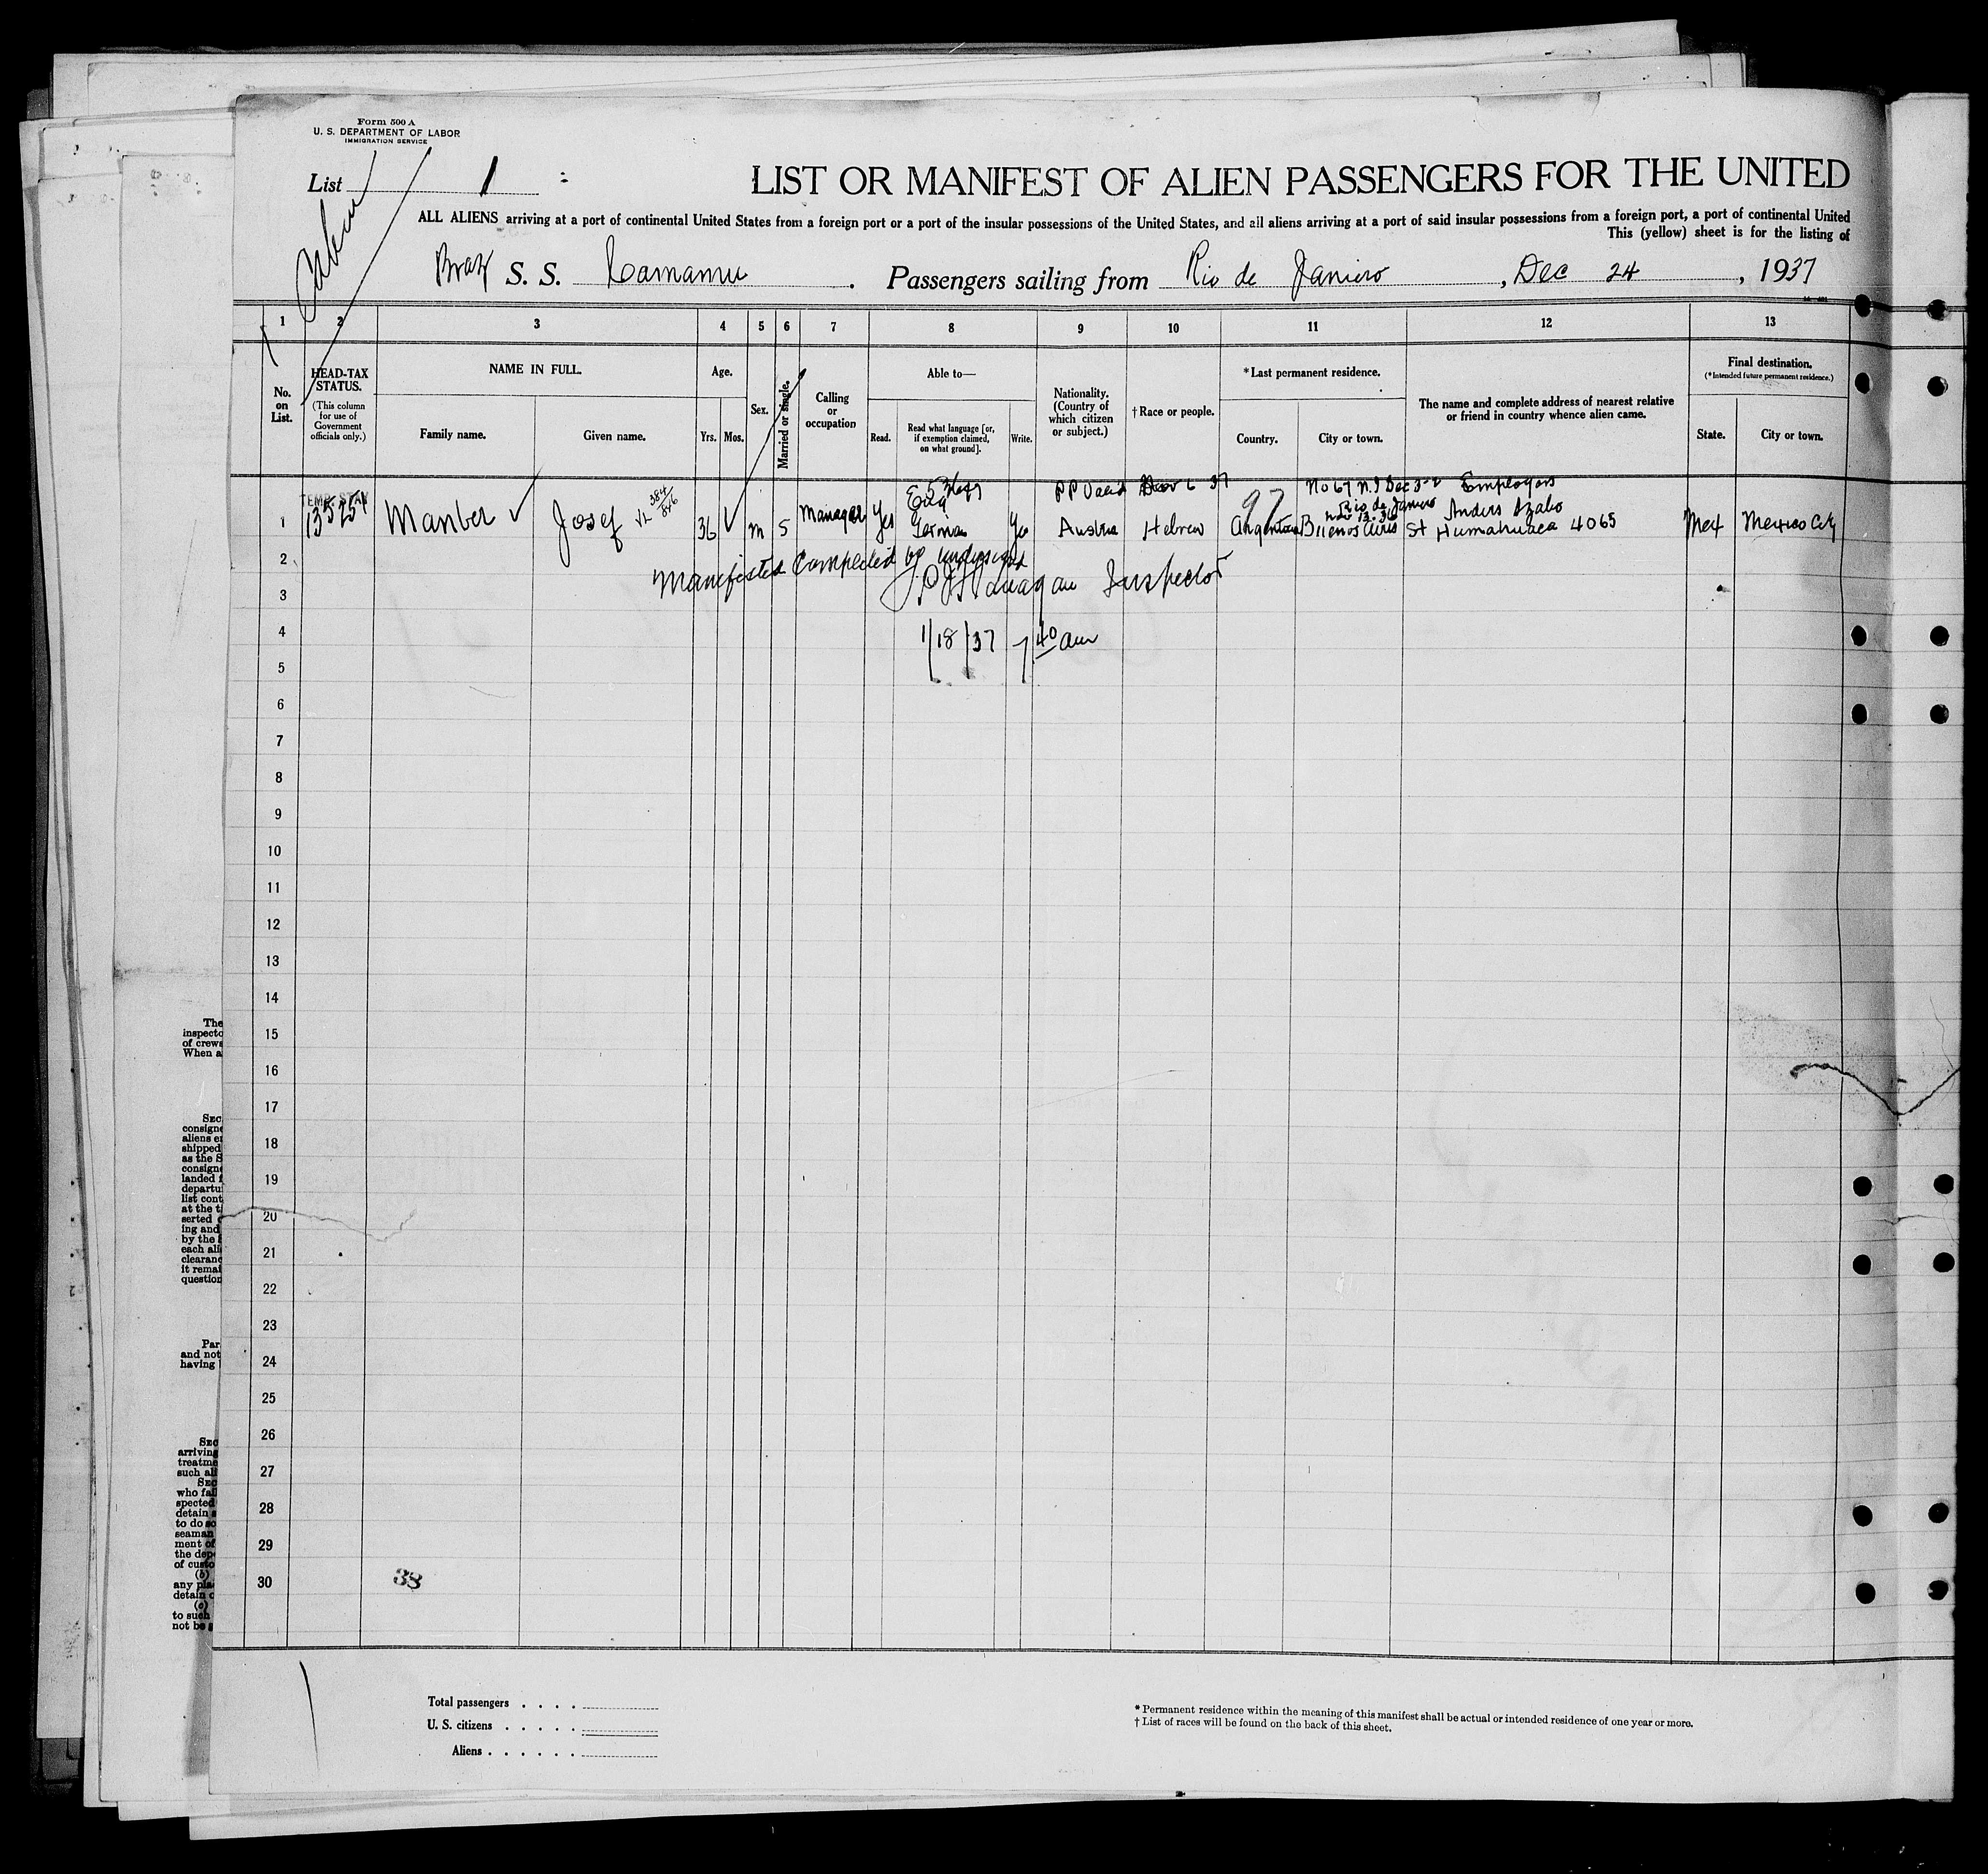 Form 500 A
U. S. DEPARTMENT OF LABOR
IMMIGRATION SERVICE
List 1
Cabin
LIST OR MANIFEST OF ALIEN PASSENGERS FOR THE UNITED
ALL ALIENS arriving at a port of continental United States from a foreign port or a port of the insular possessions of the United States, and all aliens arriving at a port of said insular possessions from a foreign port, a port of continental United
This (yellow) sheet is for the listing of
Braz S. S. Camamu . Passengers sailing from Rio de Janiero , Dec 24 , 1937
1 2 3 4 5 6 7 8 9 10 11 12 13
No. on List.
HEAD-TAX STATUS.
(This column for use of Government officials only.)
NAME IN FULL.
Family name. Given name.
Age.
Yrs. Mos.
Sex.
Married or single.
Calling or occupation
Able to—
Read. Read what language [or, if exemption claimed, on what ground]. Write.
Nationality. (Country of which citizen or subject.)
† Race or people.
*Last permanent residence.
Country. City or town.
The name and complete address of nearest relative or friend in country whence alien came.
Final destination.
(*Intended future permanent residence.)
State. City or town.
TEMP. STAY
PP Valid Nov 6 37
No 67 N.I Dec 3-2 Employers
97 Rio de Janiero Anders Szabo
Nov 13-36
1 135254 Manber Josef 36 m S Manager Yes Eng German Yes Austria Hebrew Argentina Buenos Aires St Humahuaca 4065 Mex Mexico City
2
Manifested Completed by undersigned
3
Inspector
4
1/18/37 7 40 am
5
6
7
8
9
10
11
12
13
14
15
16
17
18
19
20
21
22
23
24
25
26
27
28
29
30
38
The
inspecto
of crews
When a
SEC
consigne
aliens e
shipped
as the S
consigne
landed f
departu
list cont
at the t
serted
ing and
by the
each ali
clearanc
it remai
question
Par
and not
having
SEC
arriving
treatme
such ali
SEC
who fai
spected
detain
to do so
seaman
ment of
the dep
of custo
(b)
any pla
detain
(c)
to such
not be
Total passengers . . . .
U. S. citizens . . . . .
Aliens . . . . . .
* Permanent residence within the meaning of this manifest shall be actual or intended residence of one year or more.
† List of races will be found on the back of this sheet.